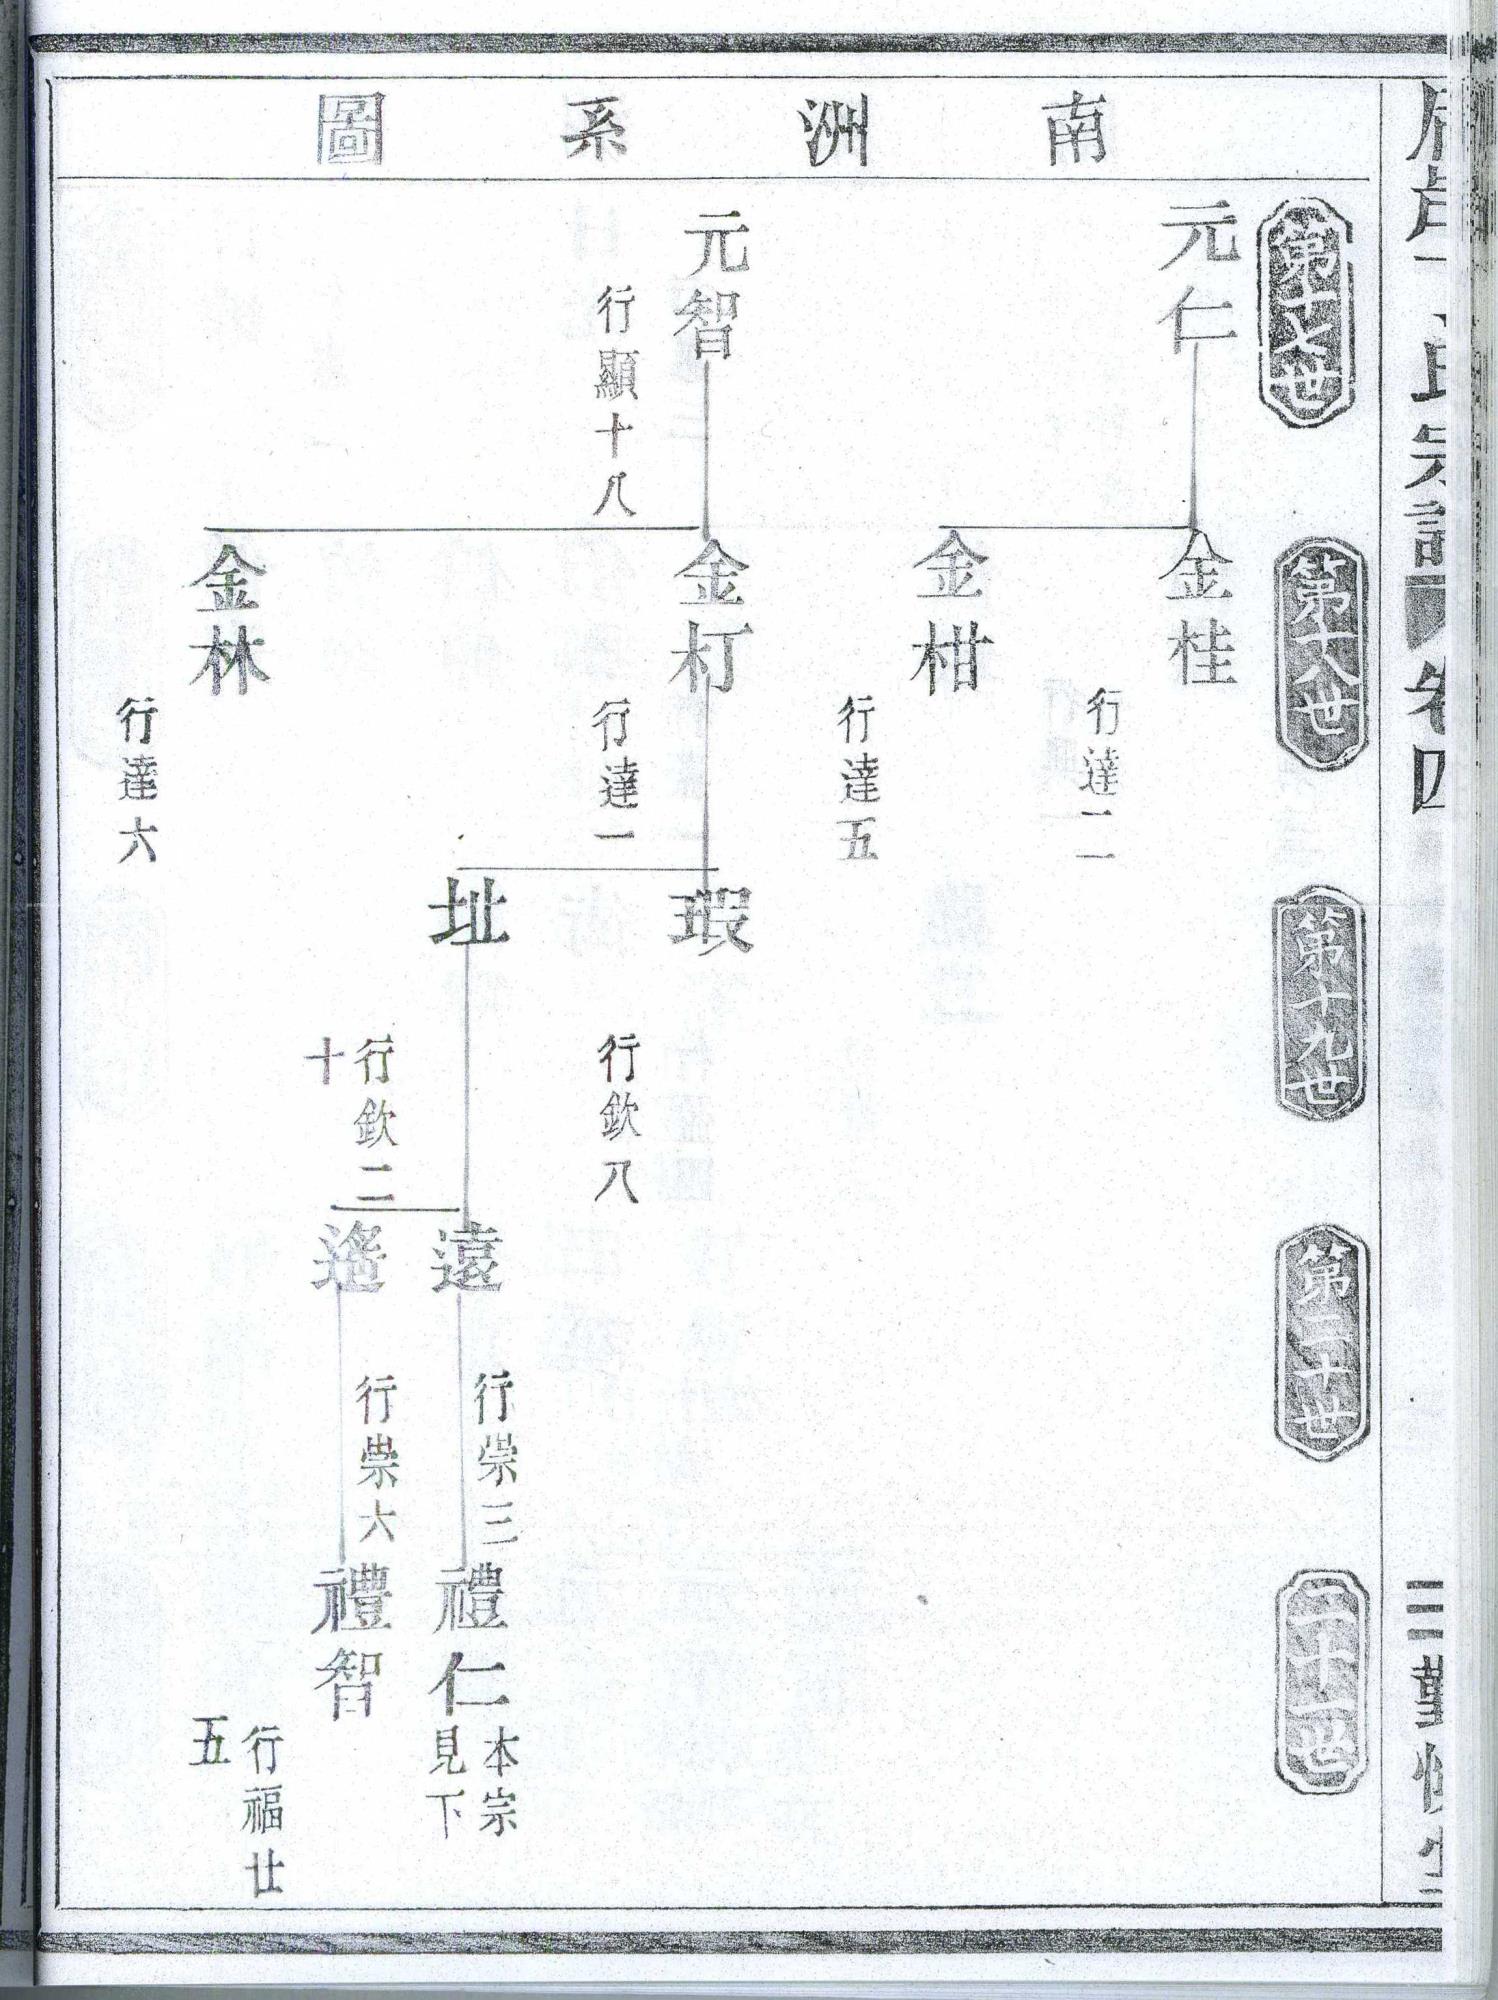 南洲系圖
第十七世
第十八世
第十九世
第二十世
二十一世
元仁
金桂
行達二
金柑
行達五
元智
行顯十八
金朾
行達一
金林
行達六
瑕
行欽八
址
行欽二
十
遠
行崇三
遙
行崇六
禮仁
本宗
見下
禮智
行福廿
五
氏宗譜
卷四
三